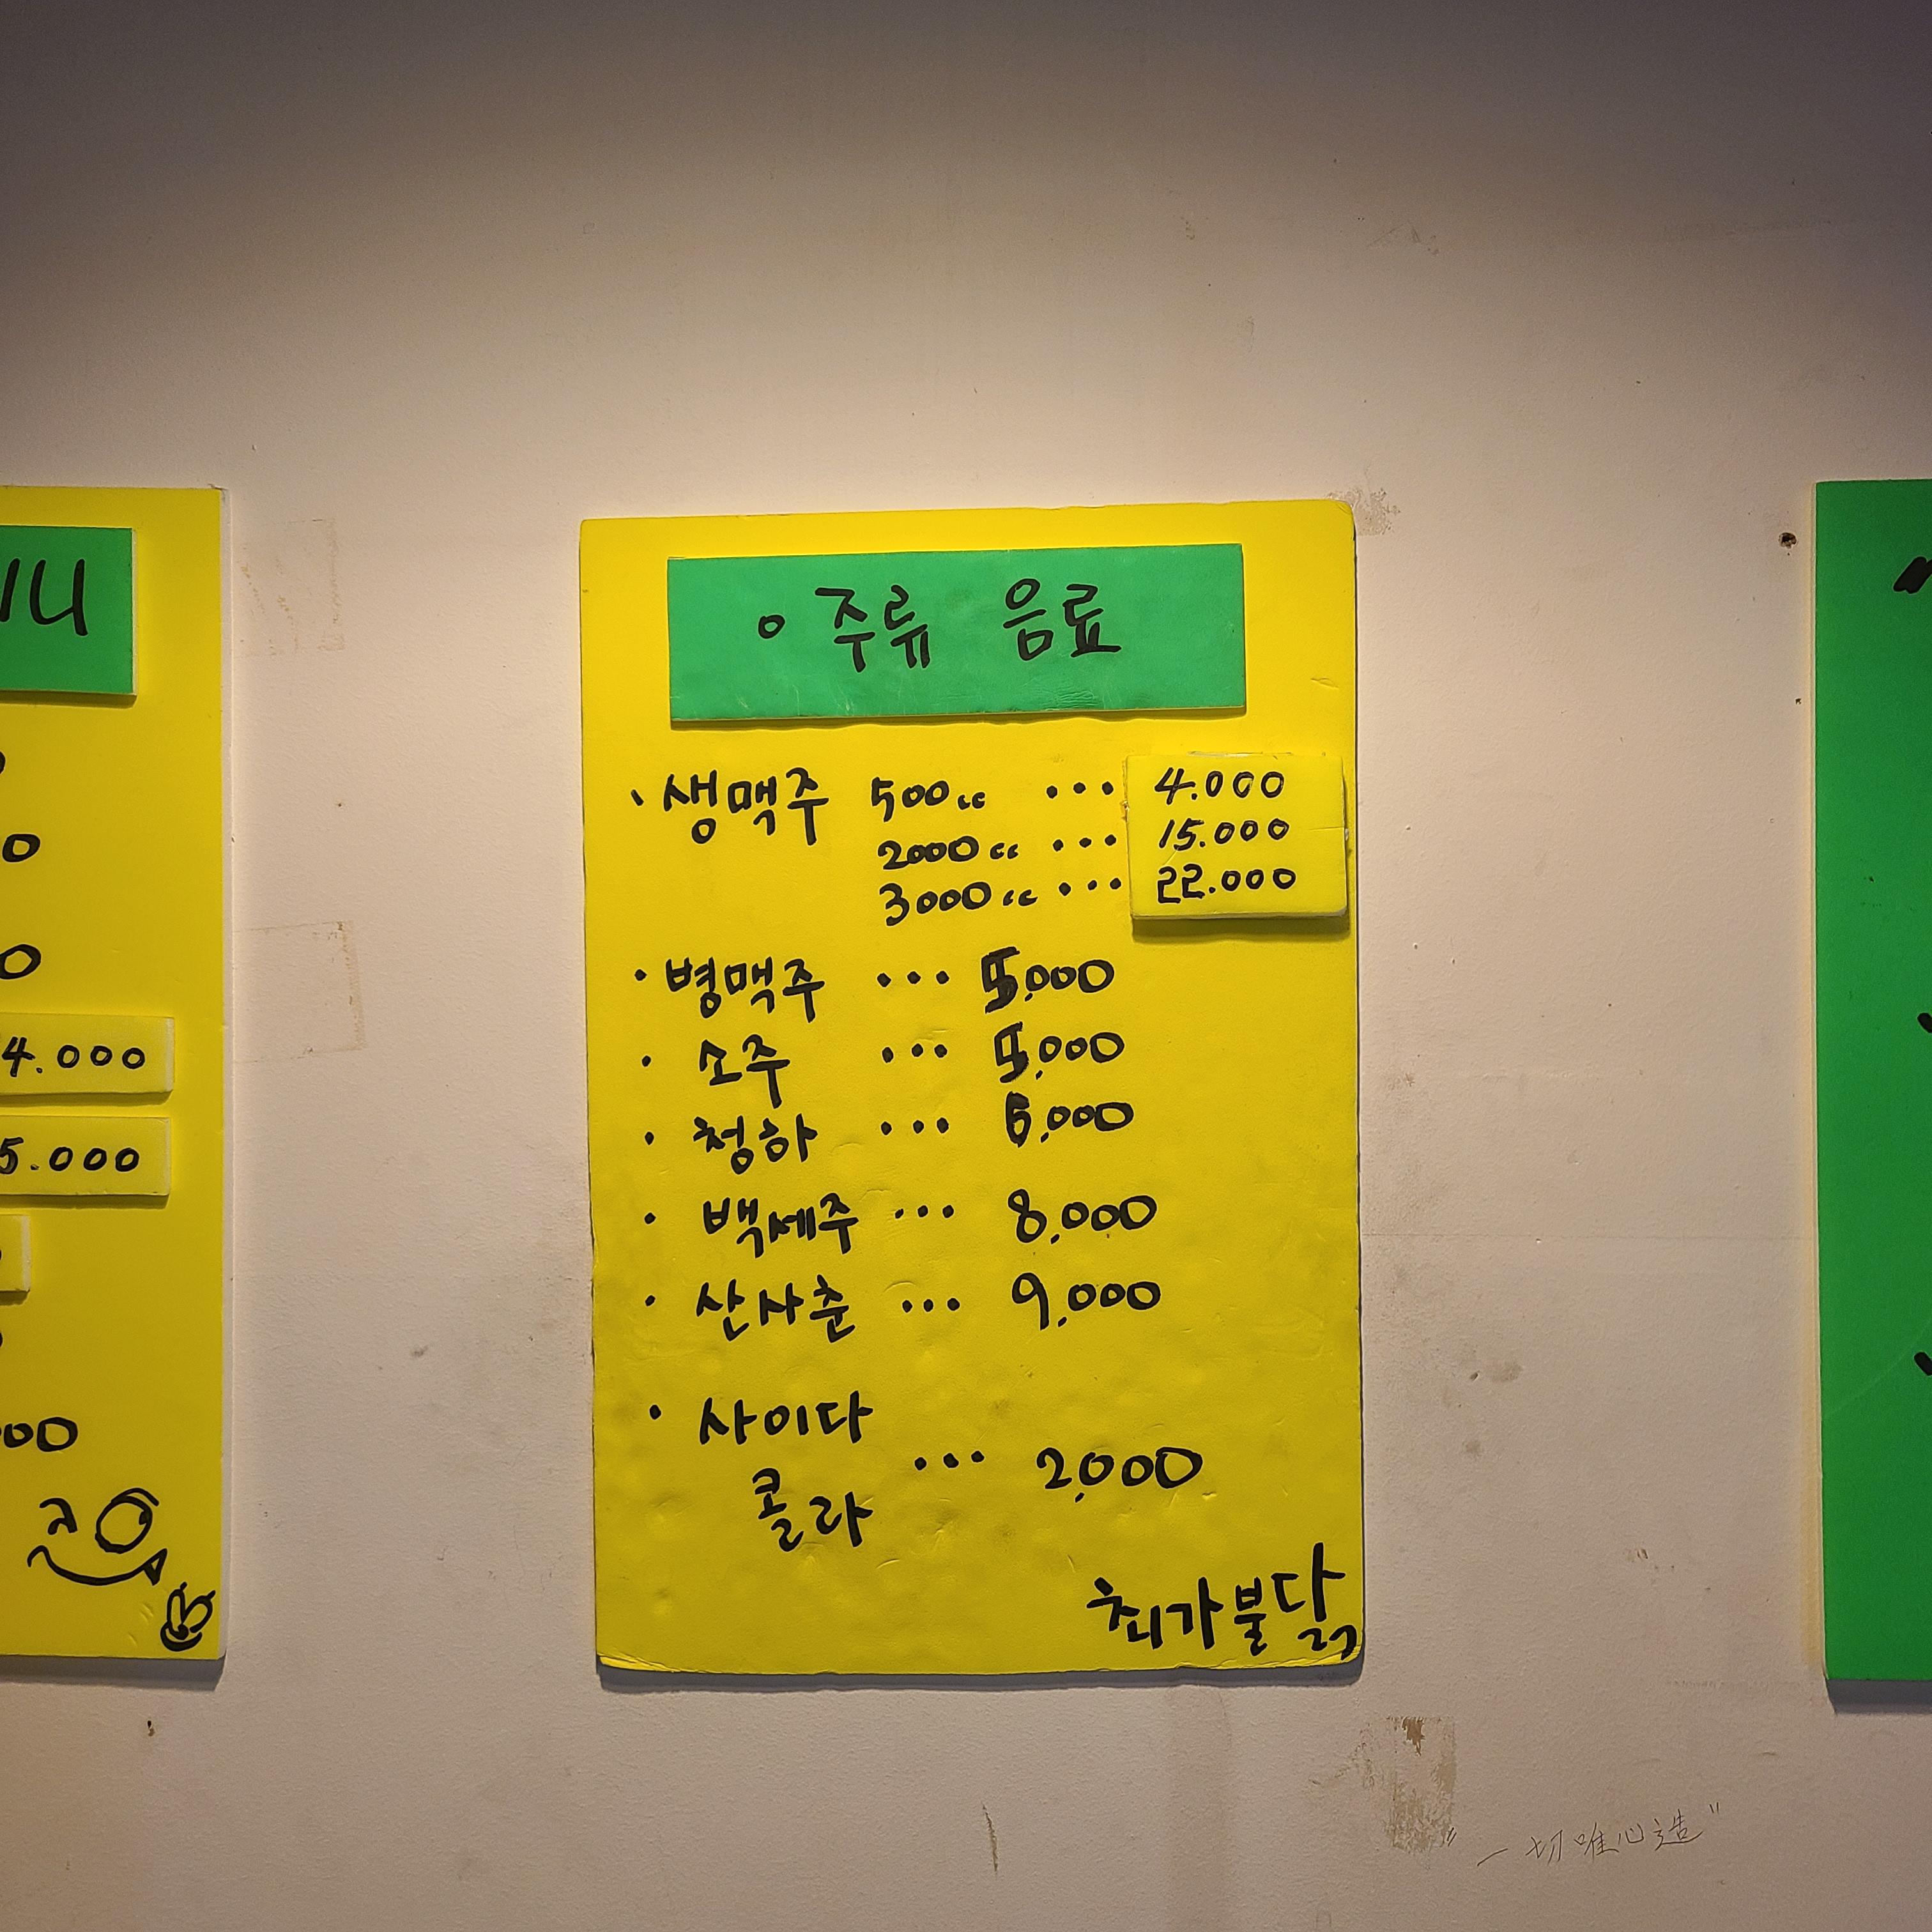 주류 음료
생맥주 500cc ... 4.000
2000cc ... 15.000
3000cc ... 22.000
병맥주 ... 5,000
소주 ... 5,000
청하 ... 6,000
백세주 ... 8,000
산사춘 ... 9,000
사이다
콜라 ... 2,000
최가불닭
4.000
5.000
"一切唯心造"